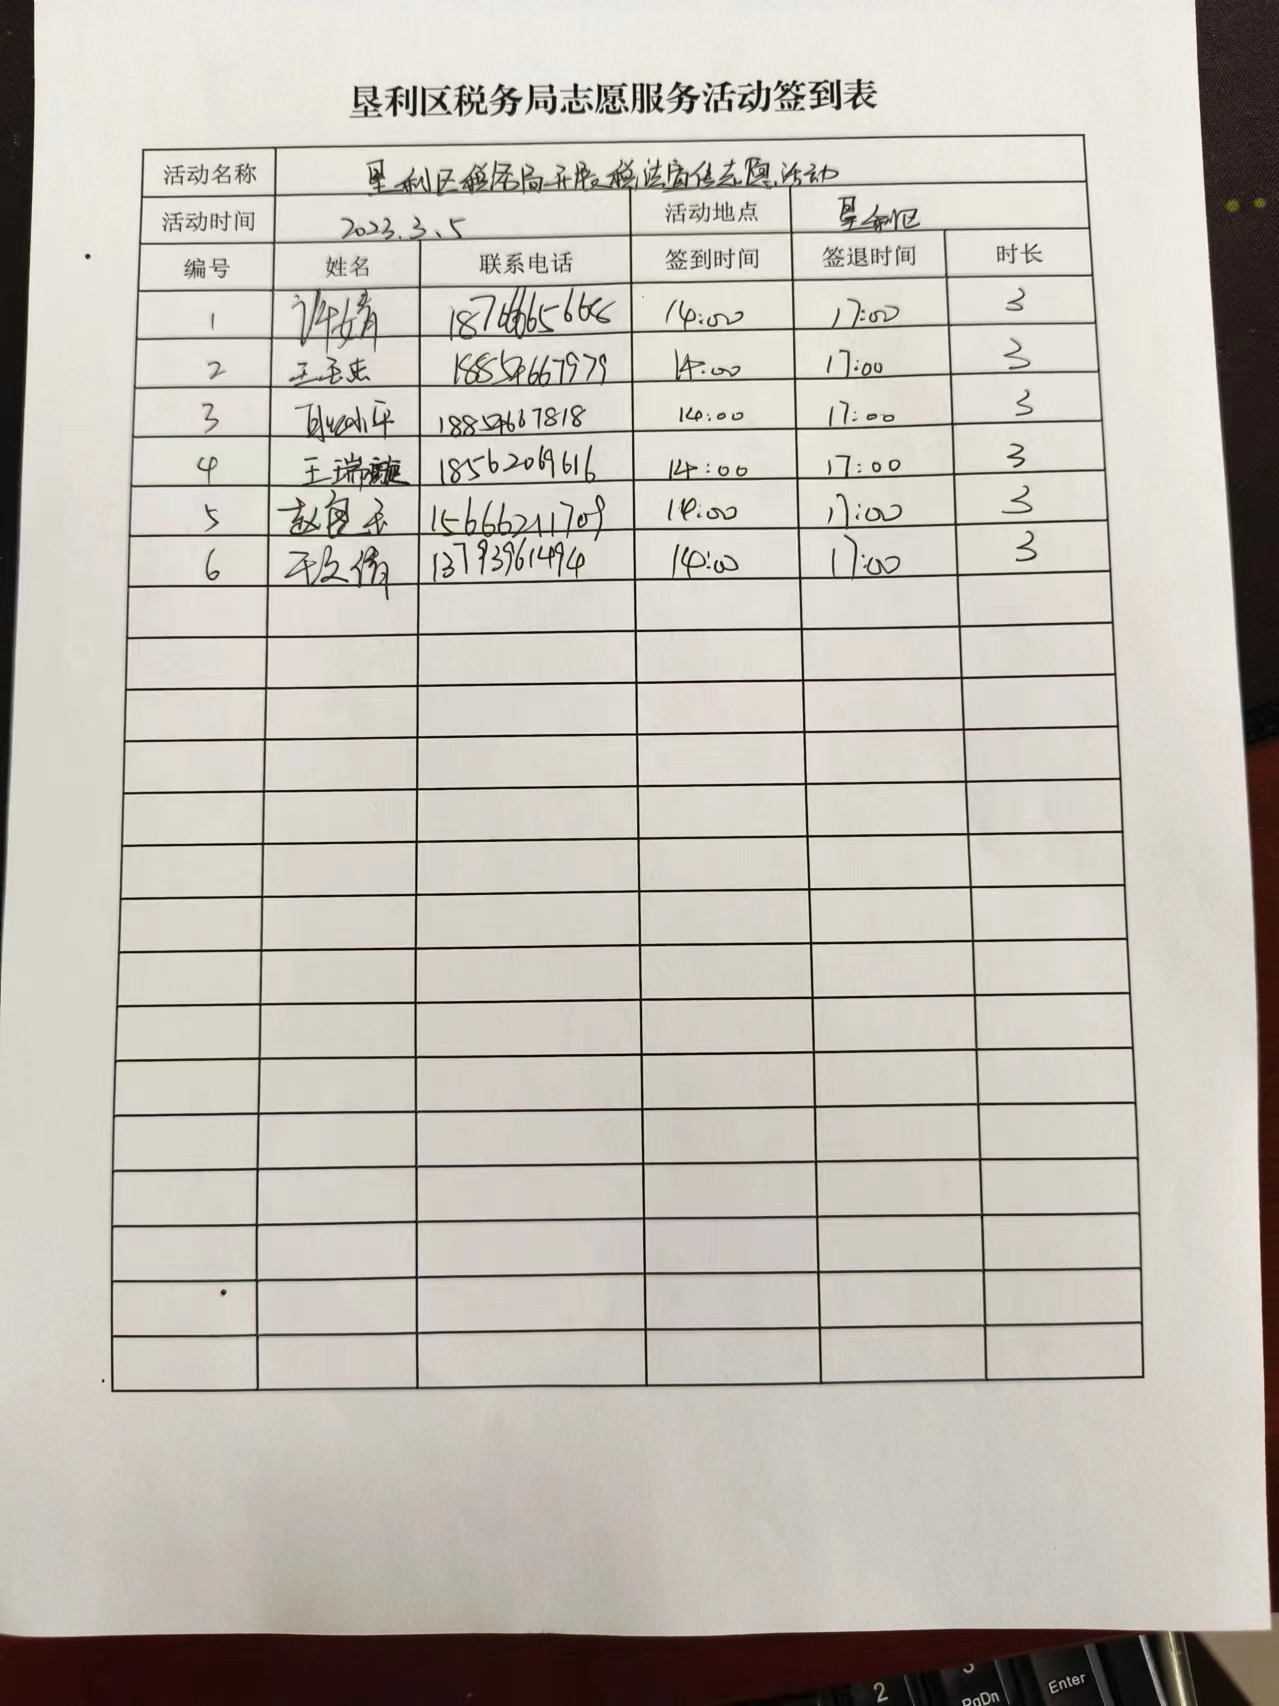 垦利区税务局志愿服务活动签到表
活动名称 垦利区税务局开展税法宣传志愿活动
活动时间 2023.3.5 活动地点 垦利区
编号 姓名 联系电话 签到时间 签退时间 时长
1 许婧 14:00 17:00 3
2 18854667979 14:00 17:00 3
3 18854667818 14:00 17:00 3
4 王瑞璇 18562069616 14:00 17:00 3
5 15666211709 14:00 17:00 3
6 13793961494 14:00 17:00 3
2
3
PgDn
Enter